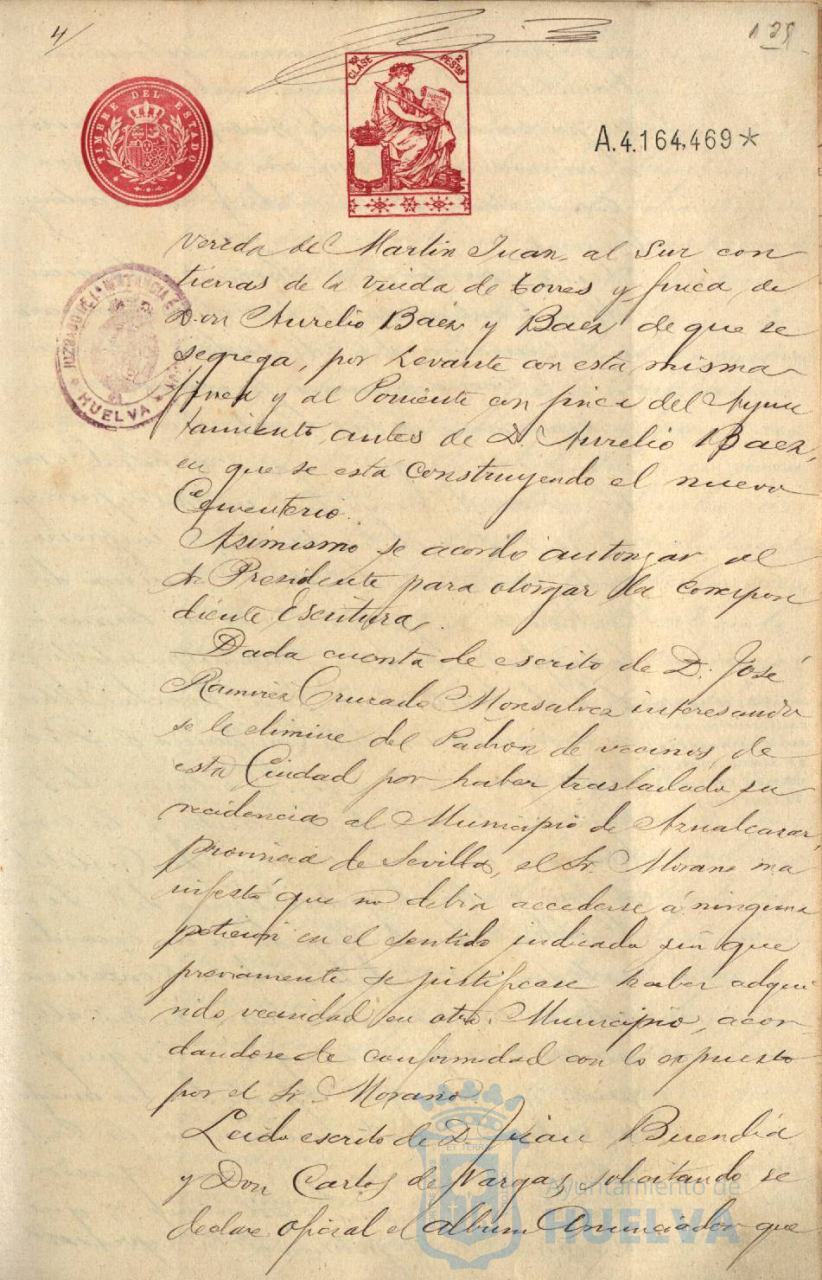 4/
129
TIMBRE DEL ESTADO
10ª CLASE
2 PESETAS
A.4.164,469*
JUZGADO DE 1ª INSTANCIA
HUELVA
vereda de Martin Juan, al Sur con
tierras de la viuda de Torres y finca de
Don Aurelio Báez y Báez de que se
segrega, por Levante con esta misma
finca y al Poniente con finca del Ayun
tamiento, antes de D. Aurelio Báez,
en que se esta construyendo el nuevo
Cementerio.
Asimismo se acordó autorizar al
Sr. Presidente para otorgar la correspon
diente Escritura.
Dada cuenta de escrito de D. José
Ramirez Cruzado Monsalvez interesando
se le elimine del Padrón de vecinos de
esta Ciudad por haber trasladado su
recidencia al Municipio de Aznalcazar,
provincia de Sevilla, el Sr. Morano ma
nifestó que no debia accederse á ninguna
peticion en el sentido indicado sin que
previamente se justificase haber adqui
rido vecindad en otro Municipio, acor
dandose de conformidad con lo expuesto
por el Sr. Morano.
Leido escrito de D. Juan Buendía
y Don Carlos de Vargas, solicitando se
declare oficial el album Anunciador que
Ayuntamiento de
HUELVA